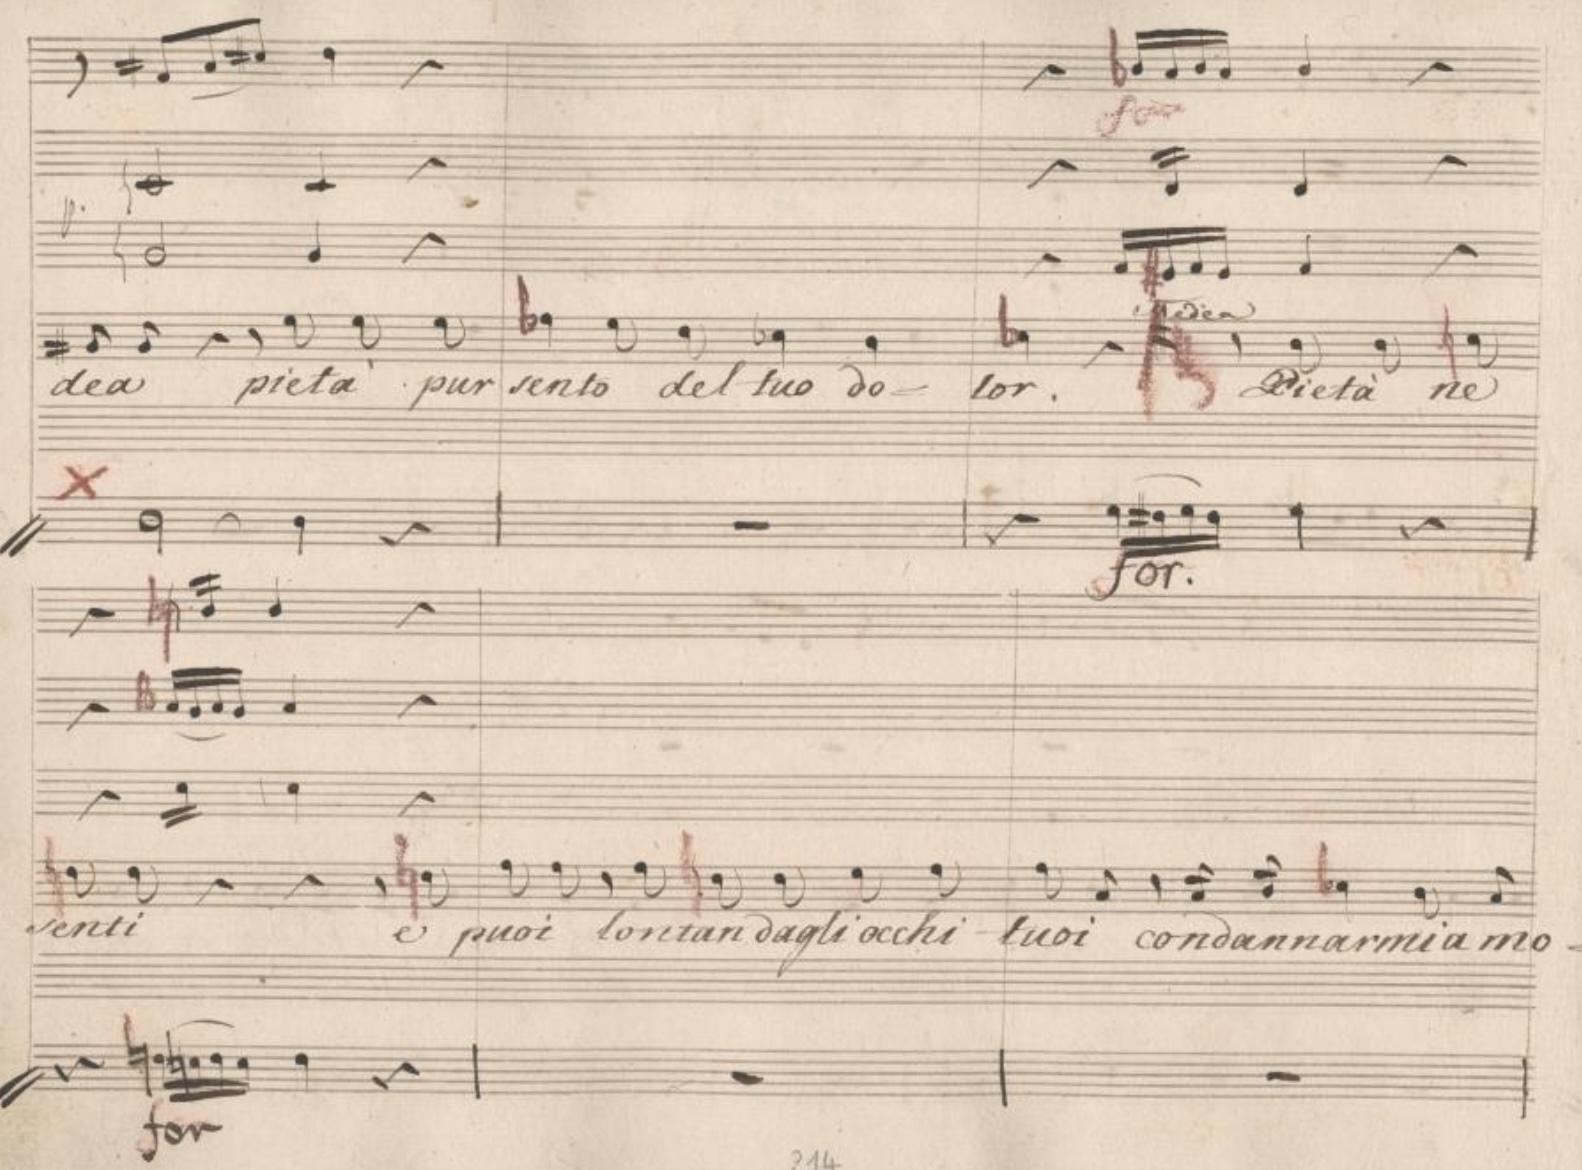 for
Medea
dea pietà pur sento del tuo do- lor. Pietà ne
for.
senti e puoi lontan dagli occhi tuoi condannarmi a mo-
for
214